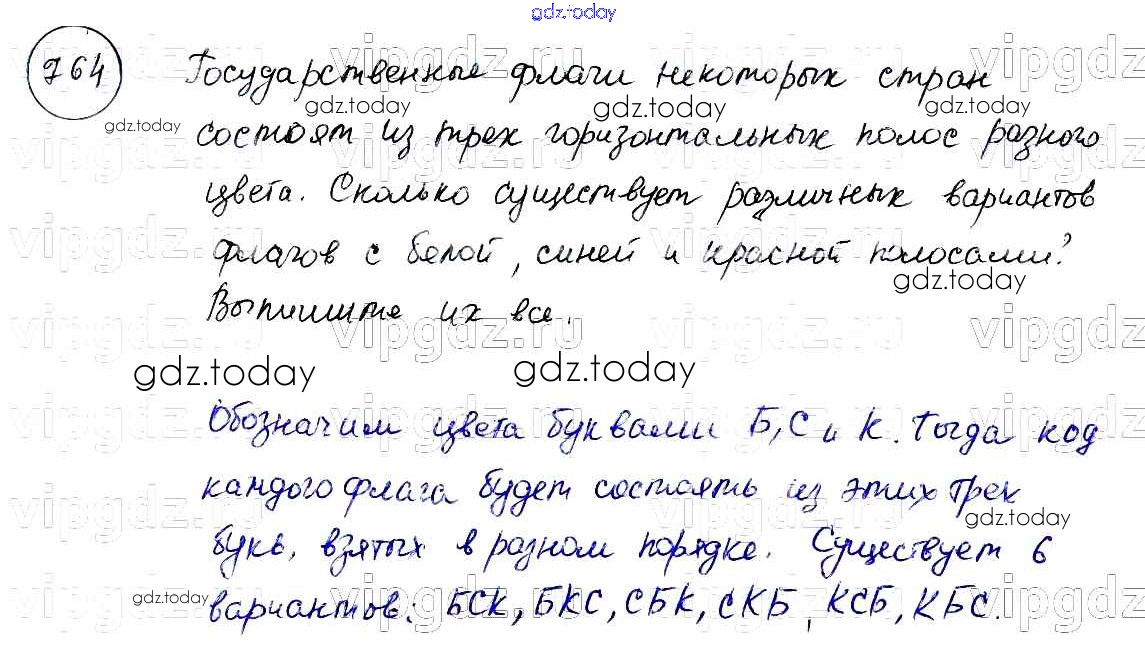 gdz.today
764 Государственные флаги некоторых стран
gdz.today gdz.today gdz.today gdz.today
состоят из трех горизонтальных полос разного
цвета. Сколько существует различных вариантов
флагов с белой, синей и красной полосами?
gdz.today
Выпишите их все.
gdz.today gdz.today
Обозначим цвета буквами Б, С и К. Тогда код
каждого флага будет состоять из этих трех
gdz.today
букв, взятых в разном порядке. Существует 6
gdz.today
вариантов: БСК, БКС, СБК, СКБ, КСБ, КБС.